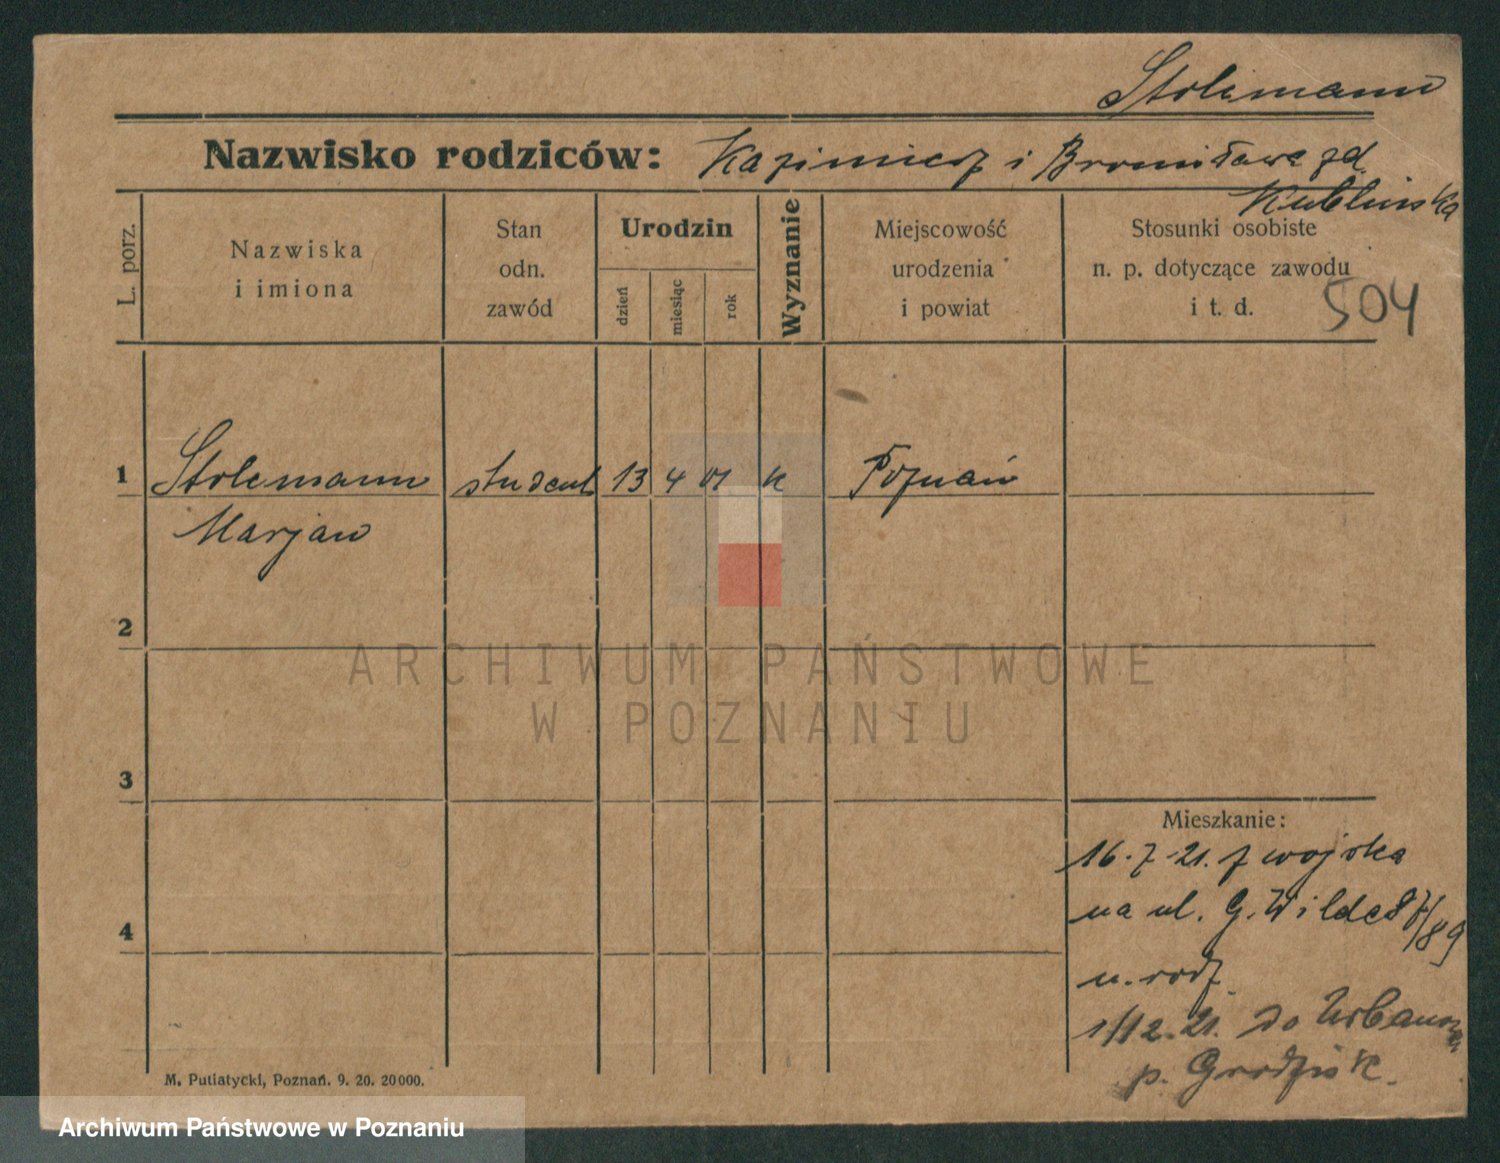 Stolzmann
Nazwisko rodziców: Kazimierz i Bronisława zd.
Kublinska
L. porz.
Nazwiska
i imiona
Stan
odn.
zawód
Urodzin
dzień
miesiąc
rok
Wyznanie
Miejscowość
urodzenia
i powiat
Stosunki osobiste
n. p. dotyczące zawodu
i t. d.
504
1 Stolzmann student 13 4 01 k Poznań
Marjan
2
3
4
Mieszkanie:
16.7.21. z wojska
na ul. G. Wilde 87/89
u. rodz.
1/12.21. do
p. Grodzisk.
M. Putiatycki, Poznań. 9. 20. 20000.
ARCHIWUM PAŃSTWOWE
W POZNANIU
Archiwum Państwowe w Poznaniu